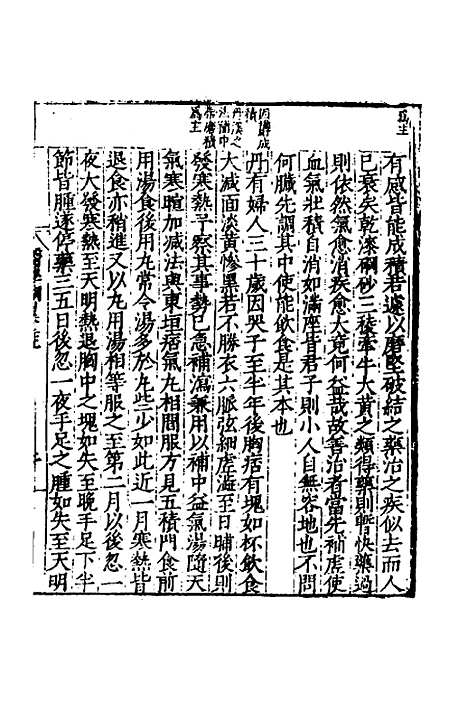 為主
有感皆能成積若遽以磨堅破結之藥治之疾似去而人
已衰矣乾漆硇砂三稜牽牛大黃之類得藥則暫快藥過
則依然氣愈消疾愈大竟何益哉故善治者當先補虛使
血氣壯積自消如滿座皆君子則小人自無容地也不問
何臟先調其中使能飲食是其本也
因鬱成積
丹溪之治補中兼磨積為主
丹有婦人三十歲因哭子至半年後胸痞有塊如杯飲食
大減面淡黃慘黑若不勝衣六脈弦細虛澁至日晡後則
發寒熱予察其事勢已急補瀉兼用以補中益氣湯隨天
氣寒暄加減法與東垣痞氣丸相間服方見五積門食前
用湯食後用丸常令湯多於丸些少如此近一月寒熱皆
退食亦稍進又以丸用湯相等服之至第二月以後忽一
夜大發寒熱至天明熱退胸中之塊如失至晚手足下半
節皆腫遂停藥三五日後忽一夜手足之腫如失至天明